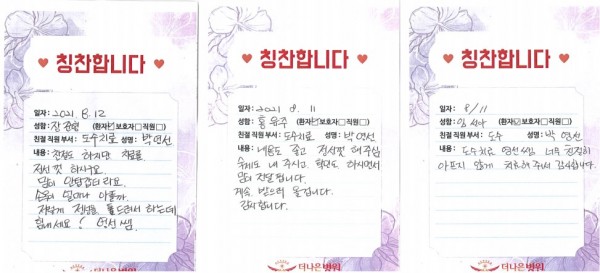 칭찬합니다
일자: 2021. 8. 12
성함: (환자☑보호자□직원□)
친절 직원 부서: 도수치료 성명: 박연선
내용: 친절도 하지만 치료를
정성껏 하시구요.
맘이 안탑깝더라요.
손목이 얼마나 아플까.
저렇게 정성을 들으셔서 하는데
힘내세요! 연선쌤.
더나은병원
칭찬합니다
일자: 2021 8. 11
성함: 홍유주 (환자☑보호자□직원□)
친절 직원 부서: 도수치료 성명: 박연선
내용: 내용도 좋고 정성껏 해주심
숙제도 내 주시고 확인도 하시면서
맘이 전달됩니다.
계속 받으러 올겁니다.
감사합니다.
더나은병원
칭찬합니다
일자: 8/11
성함: (환자☑보호자□직원□)
친절 직원 부서: 도수 성명: 박연선
내용: 도수치료 연선쌤 너무 친절히
아프지 않게 치료해 주셔서 감사합니다.